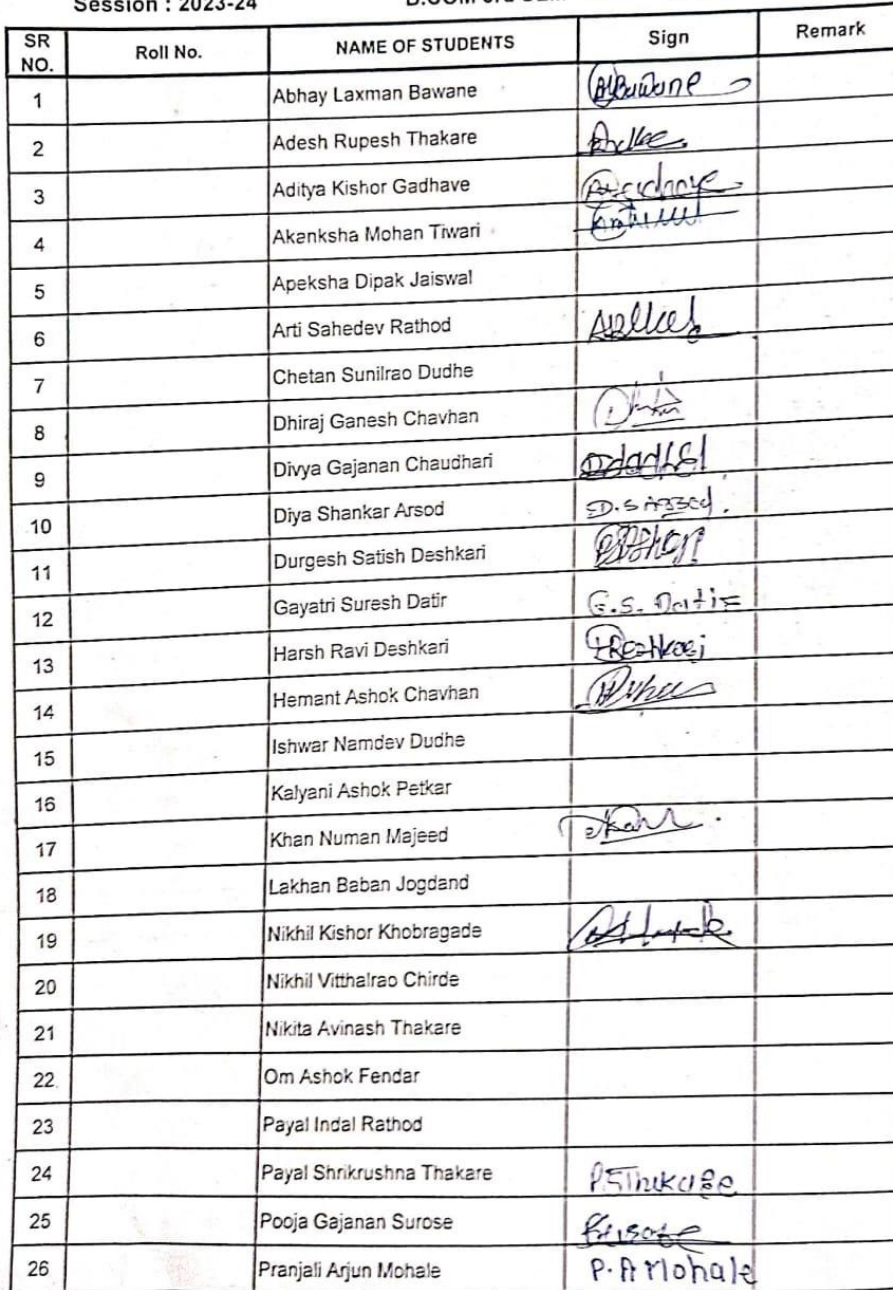 Session : 2023-24
SR NO. Roll No. NAME OF STUDENTS Sign Remark
1 Abhay Laxman Bawane
2 Adesh Rupesh Thakare
3 Aditya Kishor Gadhave
4 Akanksha Mohan Tiwari
5 Apeksha Dipak Jaiswal
6 Arti Sahedev Rathod
7 Chetan Sunilrao Dudhe
8 Dhiraj Ganesh Chavhan
9 Divya Gajanan Chaudhari
10 Diya Shankar Arsod D.S Arsod.
11 Durgesh Satish Deshkari
12 Gayatri Suresh Datir G.S. Datir
13 Harsh Ravi Deshkari
14 Hemant Ashok Chavhan
15 Ishwar Namdev Dudhe
16 Kalyani Ashok Petkar
17 Khan Numan Majeed
18 Lakhan Baban Jogdand
19 Nikhil Kishor Khobragade
20 Nikhil Vitthalrao Chirde
21 Nikita Avinash Thakare
22 Om Ashok Fendar
23 Payal Indal Rathod
24 Payal Shrikrushna Thakare
25 Pooja Gajanan Surose
26 Pranjali Arjun Mohale P.A Mohale